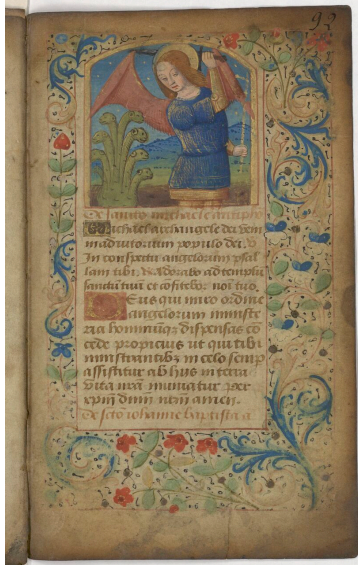 93
De sancto michaele antipho
Michael archangele dei veni
in adiutorium populo dei. V
In conspectu angelorum psal
lam tibi. R. Adorabo ad templū
sanctū tuū et cōfitebor noī tuo.
Deus qui miro ordine
angelorum ministe
ria hominūqꝫ dispensas cō
cede propicius ut qui tibi
ministrantibꝫ in celo semp
assistitur ab hijs in terra
vita nrā muniatur per
xpm dnm nrm amen.
De scto iohanne baptista a